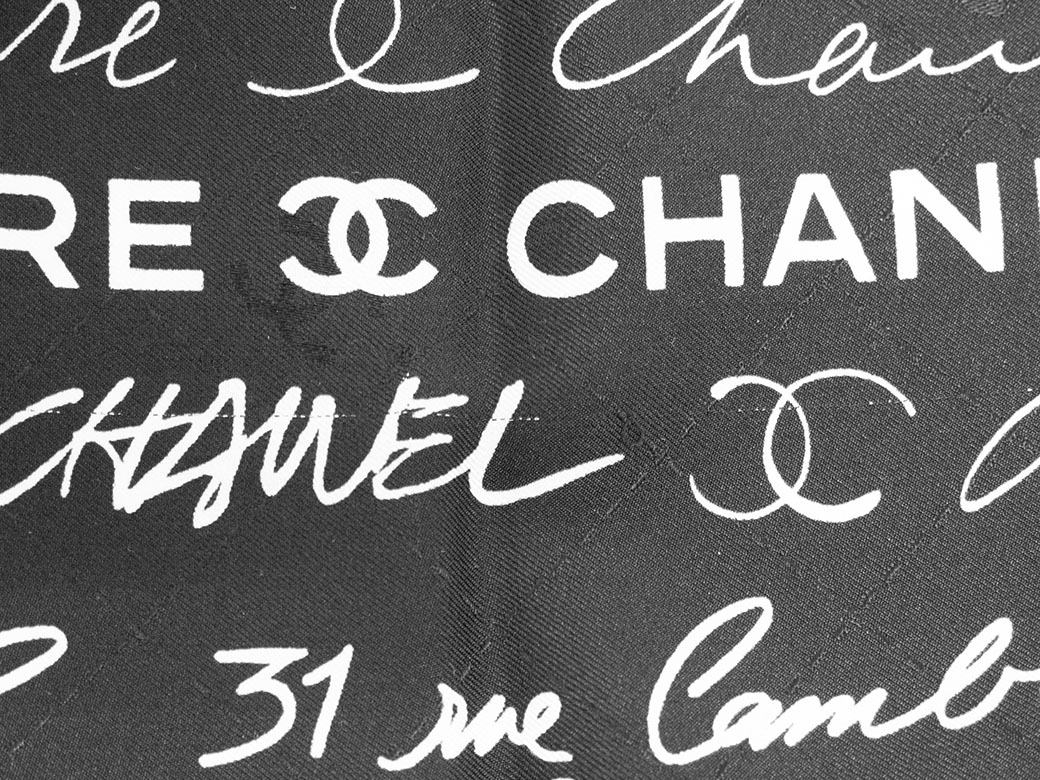 re Chan
RE CHAN
CHANEL
31 rue Camb